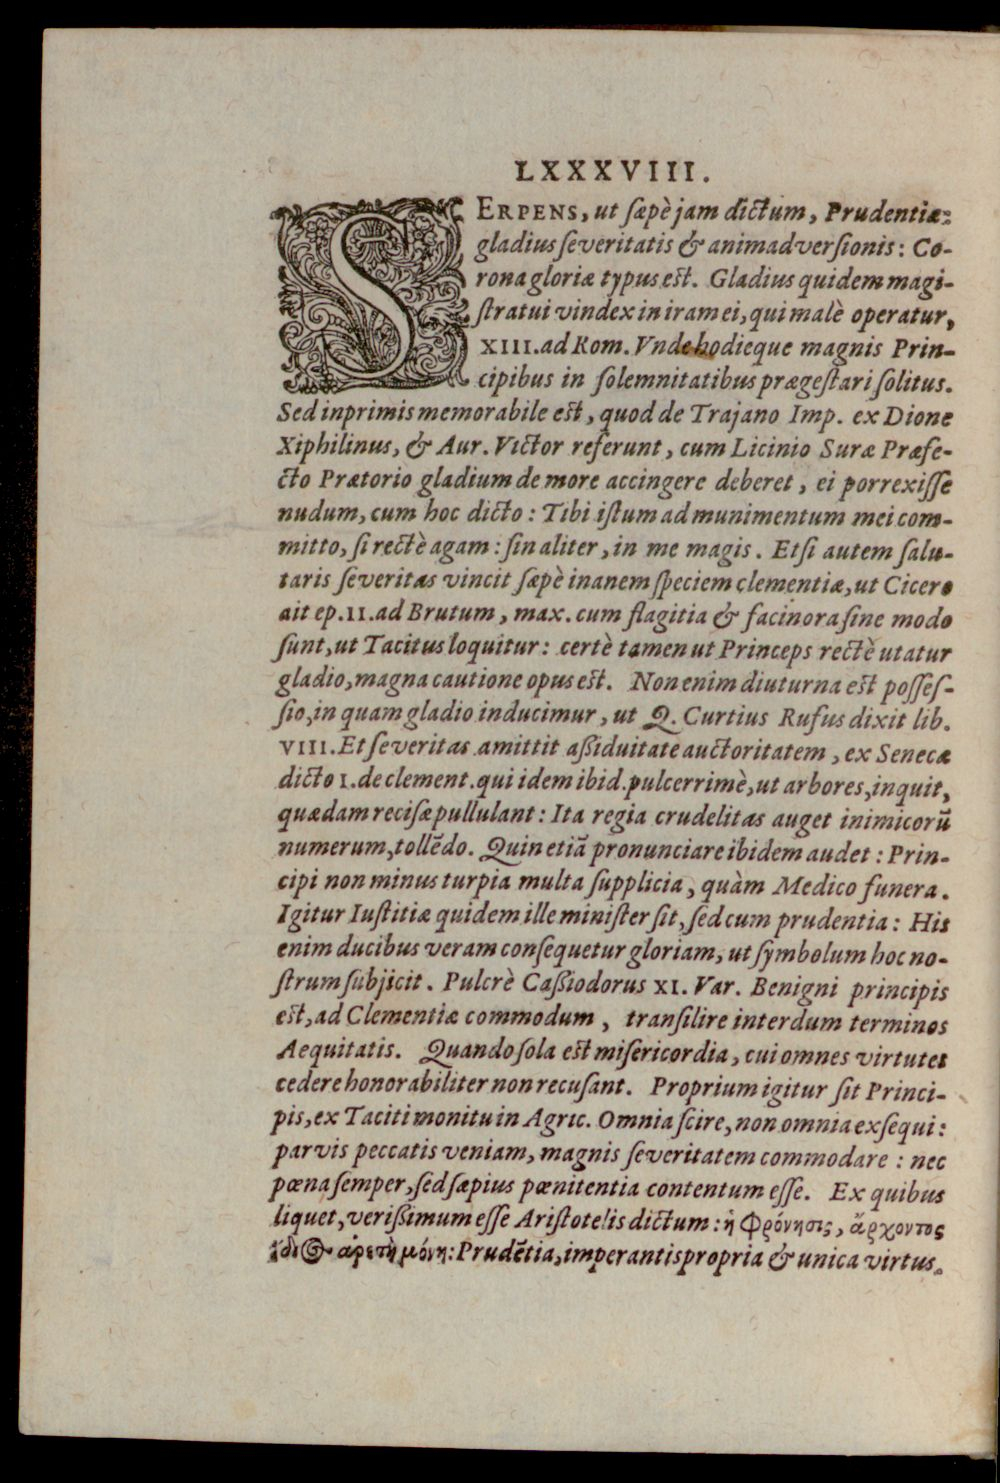 LXXXVIII.
SERPENS, ut sæpè jam dictum, Prudentiæ:
gladius severitatis & animadversionis: Co-
rona gloriæ typus est. Gladius quidem magi-
stratui vindex in iram ei, qui malè operatur,
XIII. ad Rom. Vnde hodieque magnis Prin-
cipibus in solemnitatibus prægestari solitus.
Sed inprimis memorabile est, quod de Trajano Imp. ex Dione
Xiphilinus, & Aur. Victor referunt, cum Licinio Suræ Præfe-
cto Prætorio gladium de more accingere deberet, ei porrexisse
nudum, cum hoc dicto: Tibi istum ad munimentum mei com-
mitto, si rectè agam: sin aliter, in me magis. Etsi autem salu-
taris severitas vincit sæpè inanem speciem clementiæ, ut Cicero
ait ep. II. ad Brutum, max. cum flagitia & facinora sine modo
sunt, ut Tacitus loquitur: certè tamen ut Princeps rectè utatur
gladio, magna cautione opus est. Non enim diuturna est posses-
sio, in quam gladio inducimur, ut Q. Curtius Rufus dixit lib.
VIII. Et severitas amittit assiduitate auctoritatem, ex Senecæ
dicto I. de clement. qui idem ibid. pulcerrimè, ut arbores, inquit,
quædam recisæ pullulant: Ita regia crudelitas auget inimicorū
numerum, tollēdo. Quin etiā pronunciare ibidem audet: Prin-
cipi non minus turpia multa supplicia, quàm Medico funera.
Igitur Iustitiæ quidem ille minister sit, sed cum prudentia: His
enim ducibus veram consequetur gloriam, ut symbolum hoc no-
strum subjicit. Pulcrè Cassiodorus XI. Var. Benigni principis
est, ad Clementiæ commodum, transilire interdum terminos
Aequitatis. Quando sola est misericordia, cui omnes virtutes
cedere honorabiliter non recusant. Proprium igitur sit Princi-
pis, ex Taciti monitu in Agric. Omnia scire, non omnia exsequi:
parvis peccatis veniam, magnis severitatem commodare: nec
pœna semper, sed sæpius pœnitentia contentum esse. Ex quibus
liquet, verissimum esse Aristotelis dictum: ἡ φρόνησις, ἄρχοντος
ἴδι⊙ ἀρετὴ μόνη: Prudētia, imperantis propria & unica virtus.